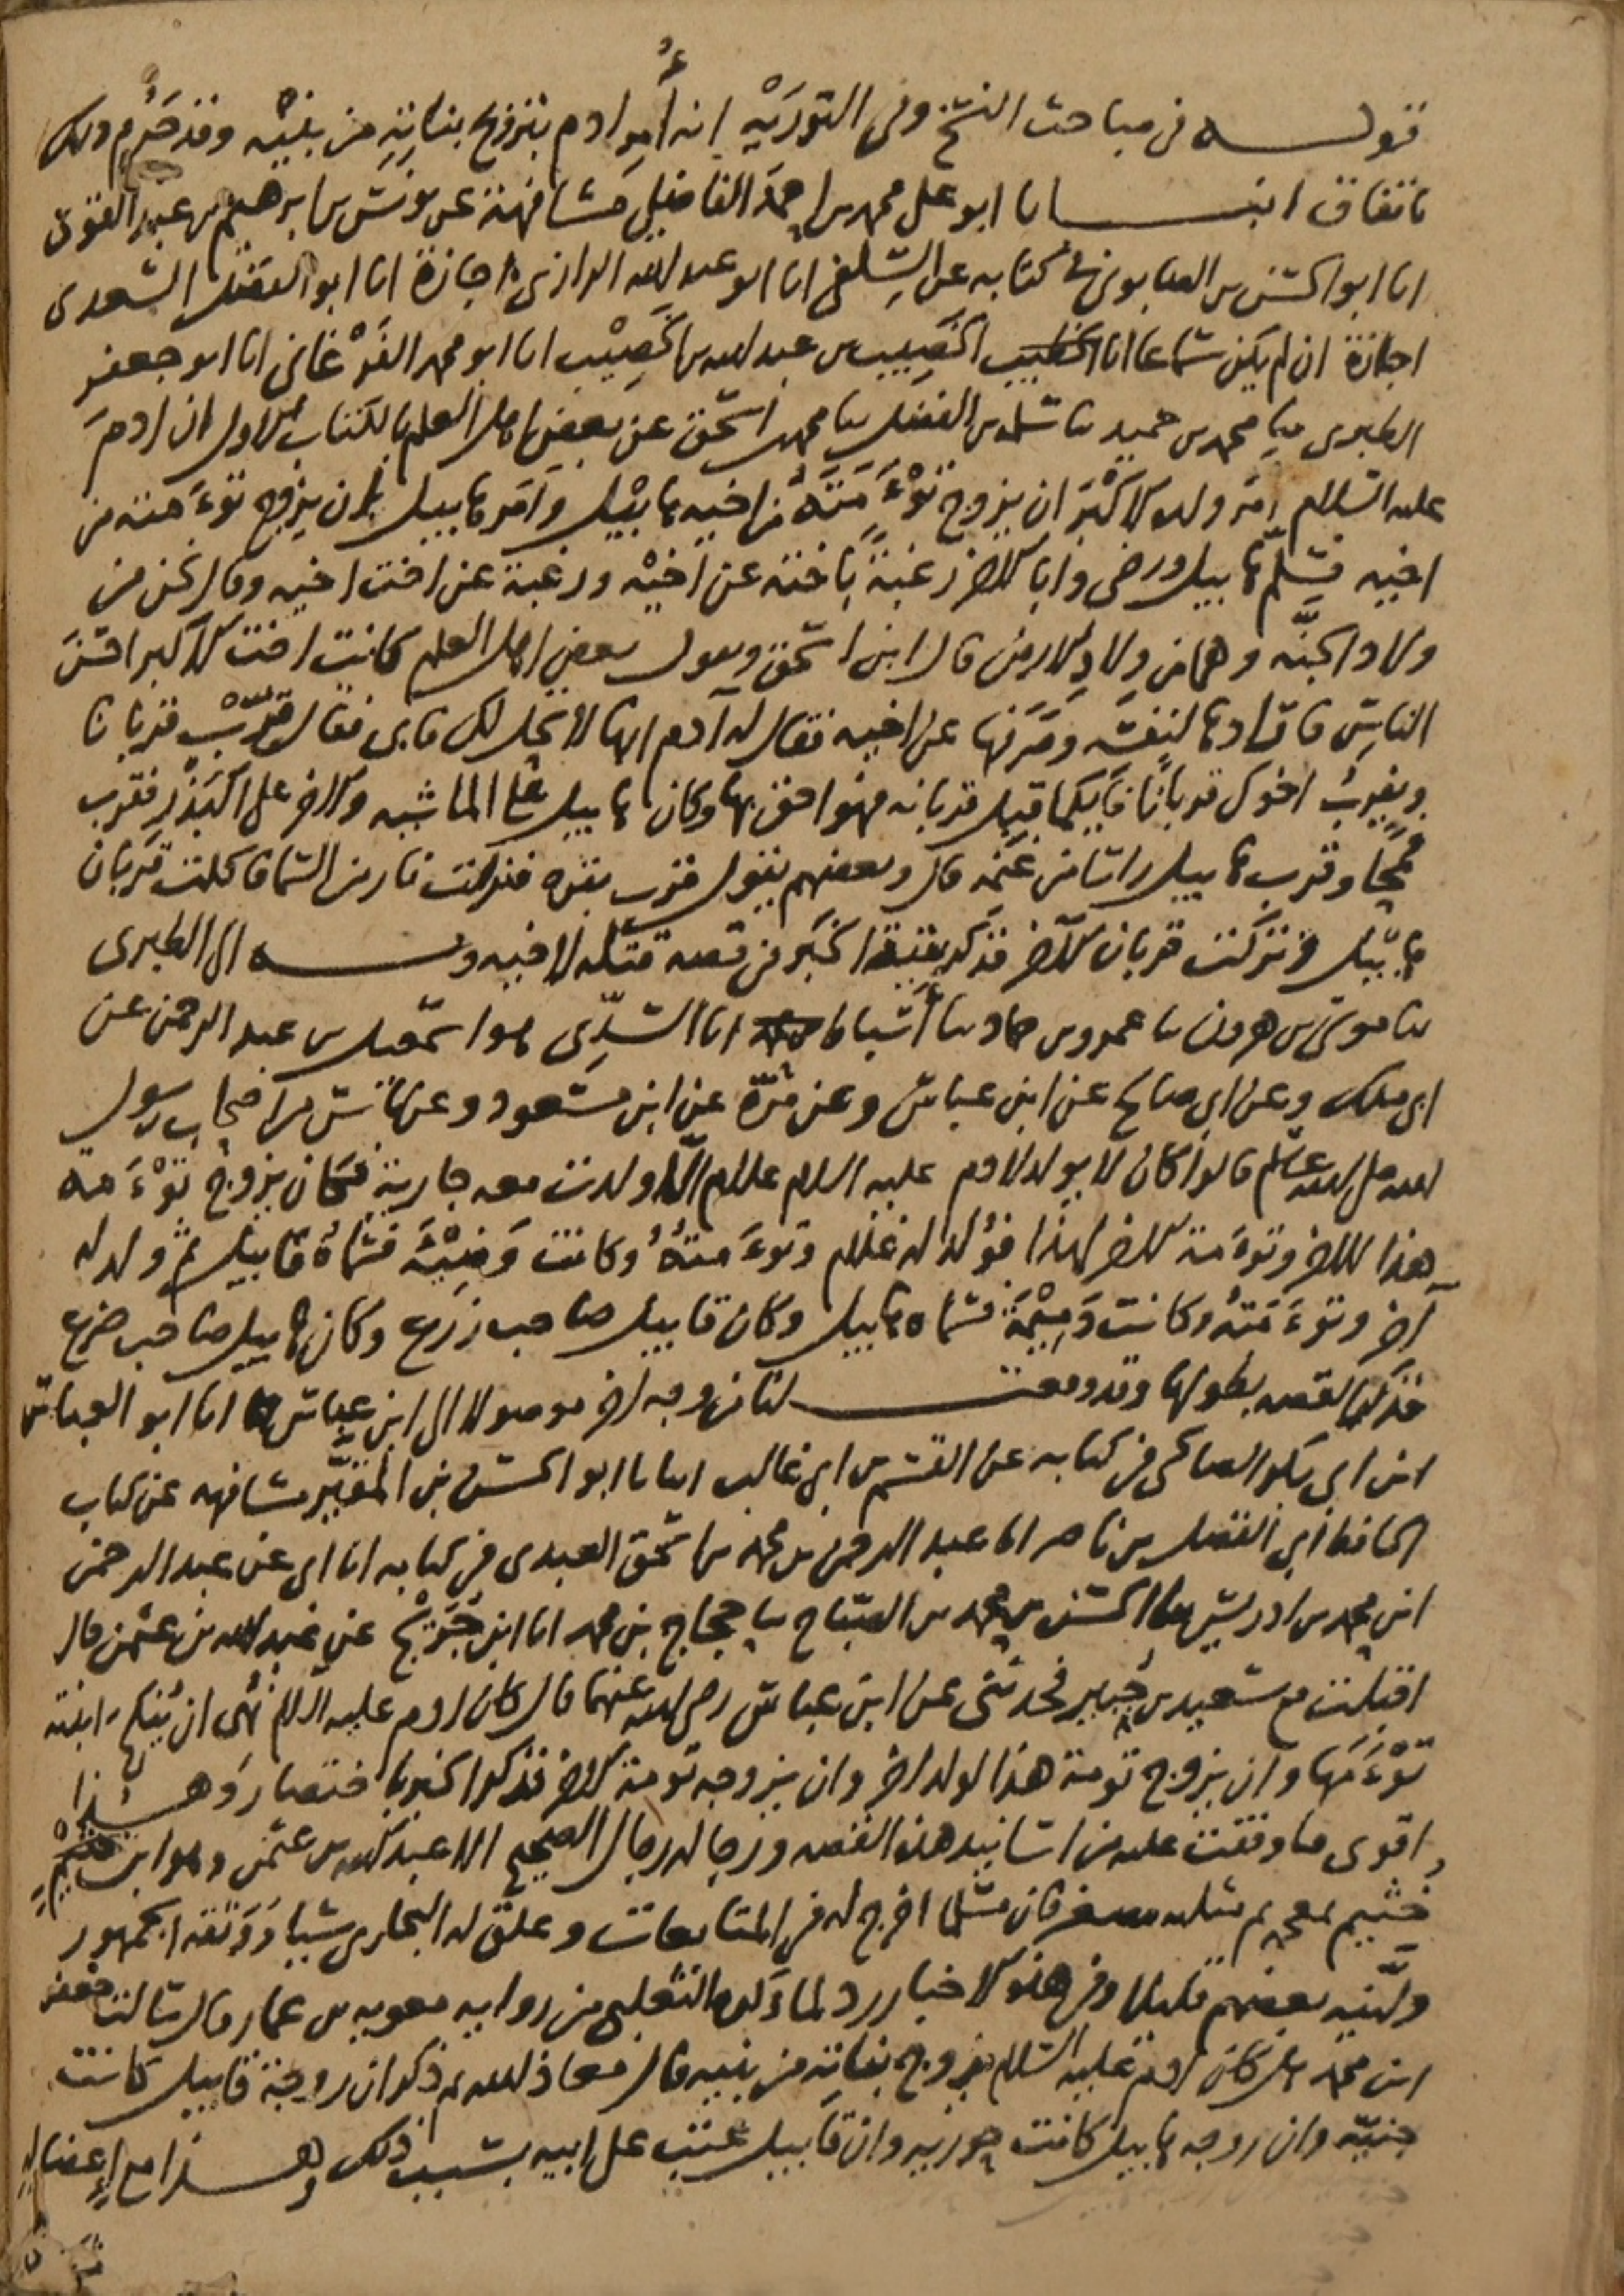 قولـــه في مباحث النسخ وفي التوريٰة انه أُمِرَ ادم بتزويج بناته من بنيه وقد حرم ذلك
باتفاق انبـــانا ابو علي محمد بن احمد الفاضلي مشافهة عن يونس بن ابرهيم بن عبد القوي
انا ابو الحسن بن الصابوني في كتابه عن السِلفي انا ابو عبد الله الرازي اجازة انا ابو الفضل السعدي
اجازة ان لم يكن سماعا انا الخصيب بن عبد الله بن الخصيب انا ابو محمد الفَرْغاني انا ابو جعفر
الطبري ثنا محمد بن حميد ثنا سلمة بن الفضل ثنا محمد بن اسحق عن بعض اهل العلم بالكتاب الاول ان ادم
عليه السلام امر ولده الاكبر ان يزوج توءَمَتَهُ من اخيه هابيل وامر هابيل بان يزوج توءَمته من
اخيه فسلم هابيل ورضي وابا الاخر رغبةً باخته عن اخيه ورغبة عن اخت اخيه وقال نحن من
ولاد الجنّه وهما من ولاد الارض قال ابن اسحق ويقول بعض اهل العلم كانت اخت الاكبر احسن
الناس فارادها لنفسه وصرفها عن اخيه فقال له آدم انها لا تحل لك فابى فقال قرِّبْ قربانا
ويقرب اخوك قربانا فايكما قبل قربانه فهو احق بها وكان هابيل على الماشيه والاخر على البَذْر فقرب
قمحا وقرب هابيل راسا من غنمه قال وبعضهم يقول قرب بقره فنزلت نار من السما فاكلت قربان
هابيل وتركت قربان الاخر فذكر بقية الخبر في قصة قتله لاخيه وبـــه الى الطبري
ثنا موسى بن هرون ثنا عمرو بن حماد ثنا أسباط انا السُّدِّي هو اسمعيل بن عبد الرحمن عن
ابي ملك وعن ابي صالح عن ابن عباس وعن مُرّة عن ابن مسعود وعن ناس من اصحاب رسول
الله صلى الله عليه وسلم قالوا كان لا يولد لادم عليه السلام غلام الا ولدت معه جارية فكان يزوج توءَمة
هذا للاخر وتوءَمة الاخر لهذا فوُلد له غلام وتوءَمتهُ وكانت وَضِيْئَة فسماهُ قابيل ثم ولد له
آخر وتوءَمَتهُ وكانت دَمِيْمَة فسماه هابيل وكان قابيل صاحب زرع وكان هابيل صاحب ضرع
فذكرا القصه بطولها وقد وقعـــت لنا من وجه اخر موصولا الى ابن عباس انا ابو العباس
ابن ابي بكر الصالحي في كتابه عن القسم بن ابي غالب انبانا ابو الحسن بن المقيَّر مشافهه عن كتاب
الحافظ أبي الفضل بن ناصر انا عبد الرحمن بن محمد بن اسحق العبدي في كتابه انا ابي عن عبد الرحمن
ابن محمد بن ادريس ثنا الحسن بن محمد بن الصباح ثنا حجاج بن محمد انا ابن جُرَيْج عن عبد الله بن عثمن قال
اقبلت مع سعيد بن جُبير فحدثني عن ابن عباس رضي الله عنهما قال كان ادم عليه السلام نُهي ان يُنكح ابنته
توْءَمها وان يزوج تومة هذا لولد اخر وان يزوجه تومة الاخر فذكر الخبر باختصار وهـــذا
اقوى ما وقفت عليه من اسانيد هذه القصه ورجاله رجال الصحيح الا عبد الله بن عثمن وهو ابن
خثيم بمعجمه ثم مثلثه مصغر فان مسلما اخرج له في المتابعات وعلق له البخاري شيا ووَثّقه الجمهور
وليّنه بعضهم قليلا وفي هذه الاخبار رد لما ذكره الثعلبي من رواية معويه بن عمار قال سالت جعفر
ابن محمد هل كان ادم عليه السلام يزوج بناته من بنيه قال معاذ الله ثم ذكر ان زوجة قابيل كانت
جنيّة وان زوجه هابيل كانت حوريه وان قابيل عتب على ابيه بسبب ذلك وهـــذا مع إعضاله